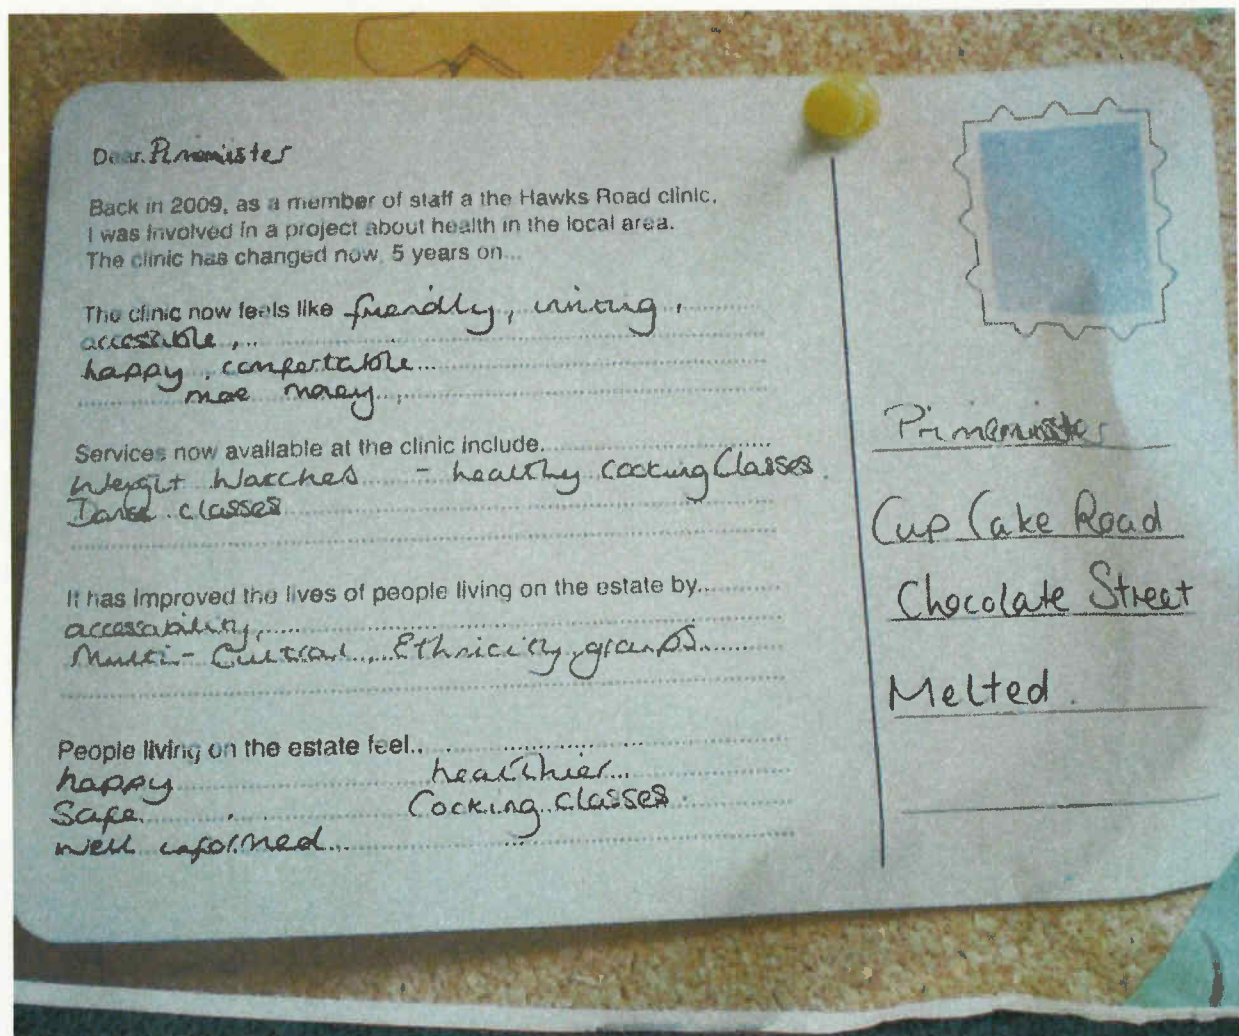 Dear. Primeminister
Back in 2009, as a member of staff a the Hawks Road clinic,
I was involved in a project about health in the local area.
The clinic has changed now, 5 years on...
The clinic now feels like friendly, inviting,
accessible,
happy, comfortable
more money,
Services now available at the clinic include
Weight Watches - healthy cooking Classes.
Dance classes
It has improved the lives of people living on the estate by
accessability,
Multi-Cultral, Ethnicity, groups
People living on the estate feel
happy healthier
Safe. Cocking classes.
well informed
Primeminister
Cup Cake Road
Chocolate Street
Melted.